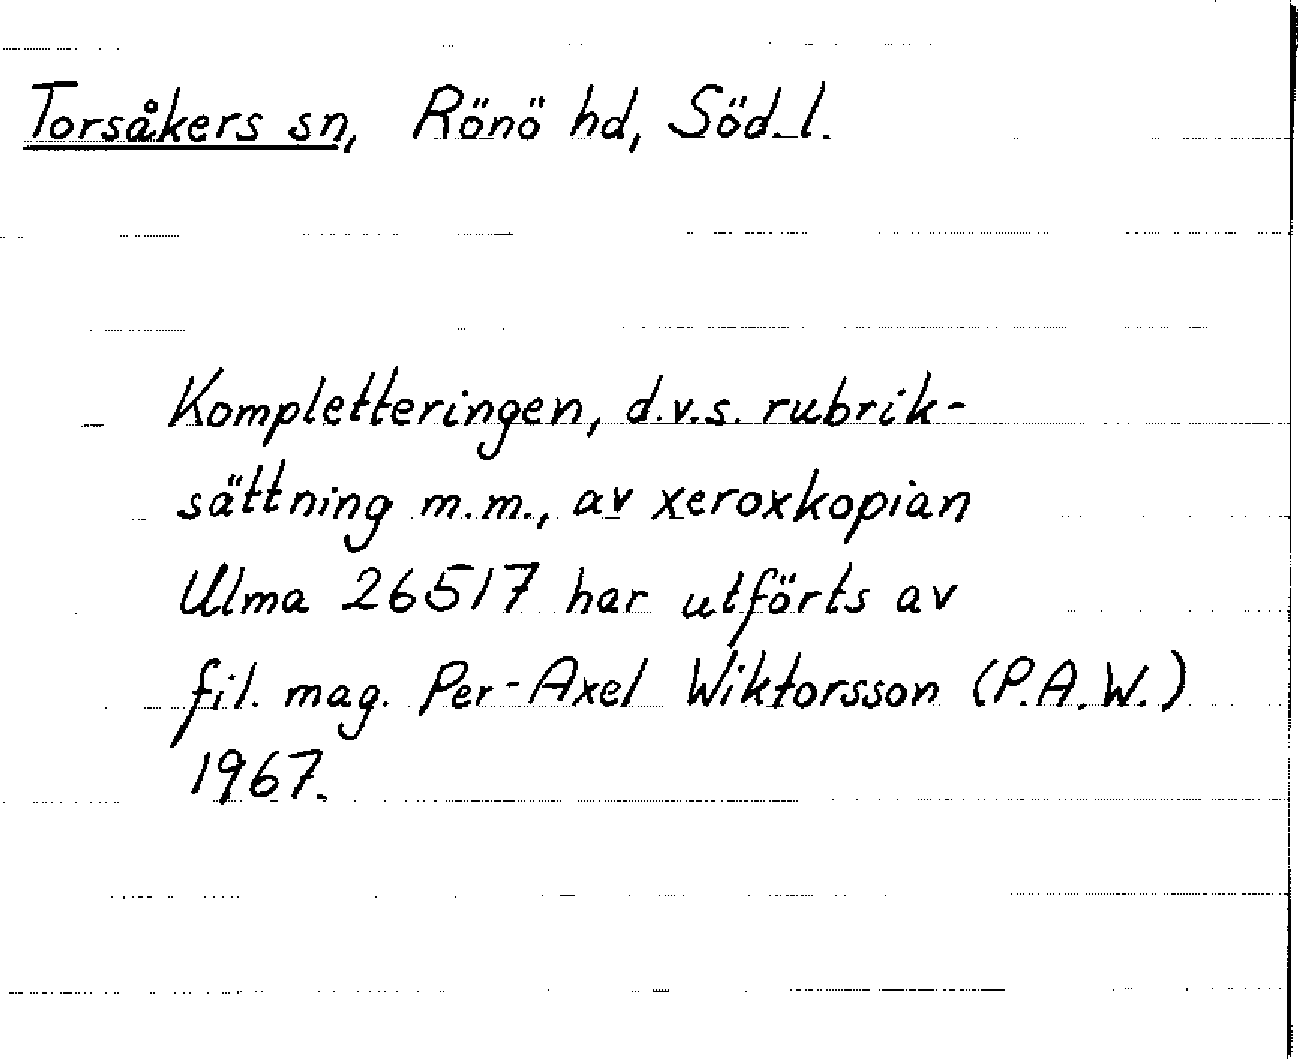 Torsåkers sn, Rönö hd, Söd. l.
Kompletteringen, d.v.s. rubrik-
sättning m.m., av xeroxkopian
Ulma 26517 har utförts av
fil. mag. Per-Axel Wiktorsson (P.A.W.)
1967.